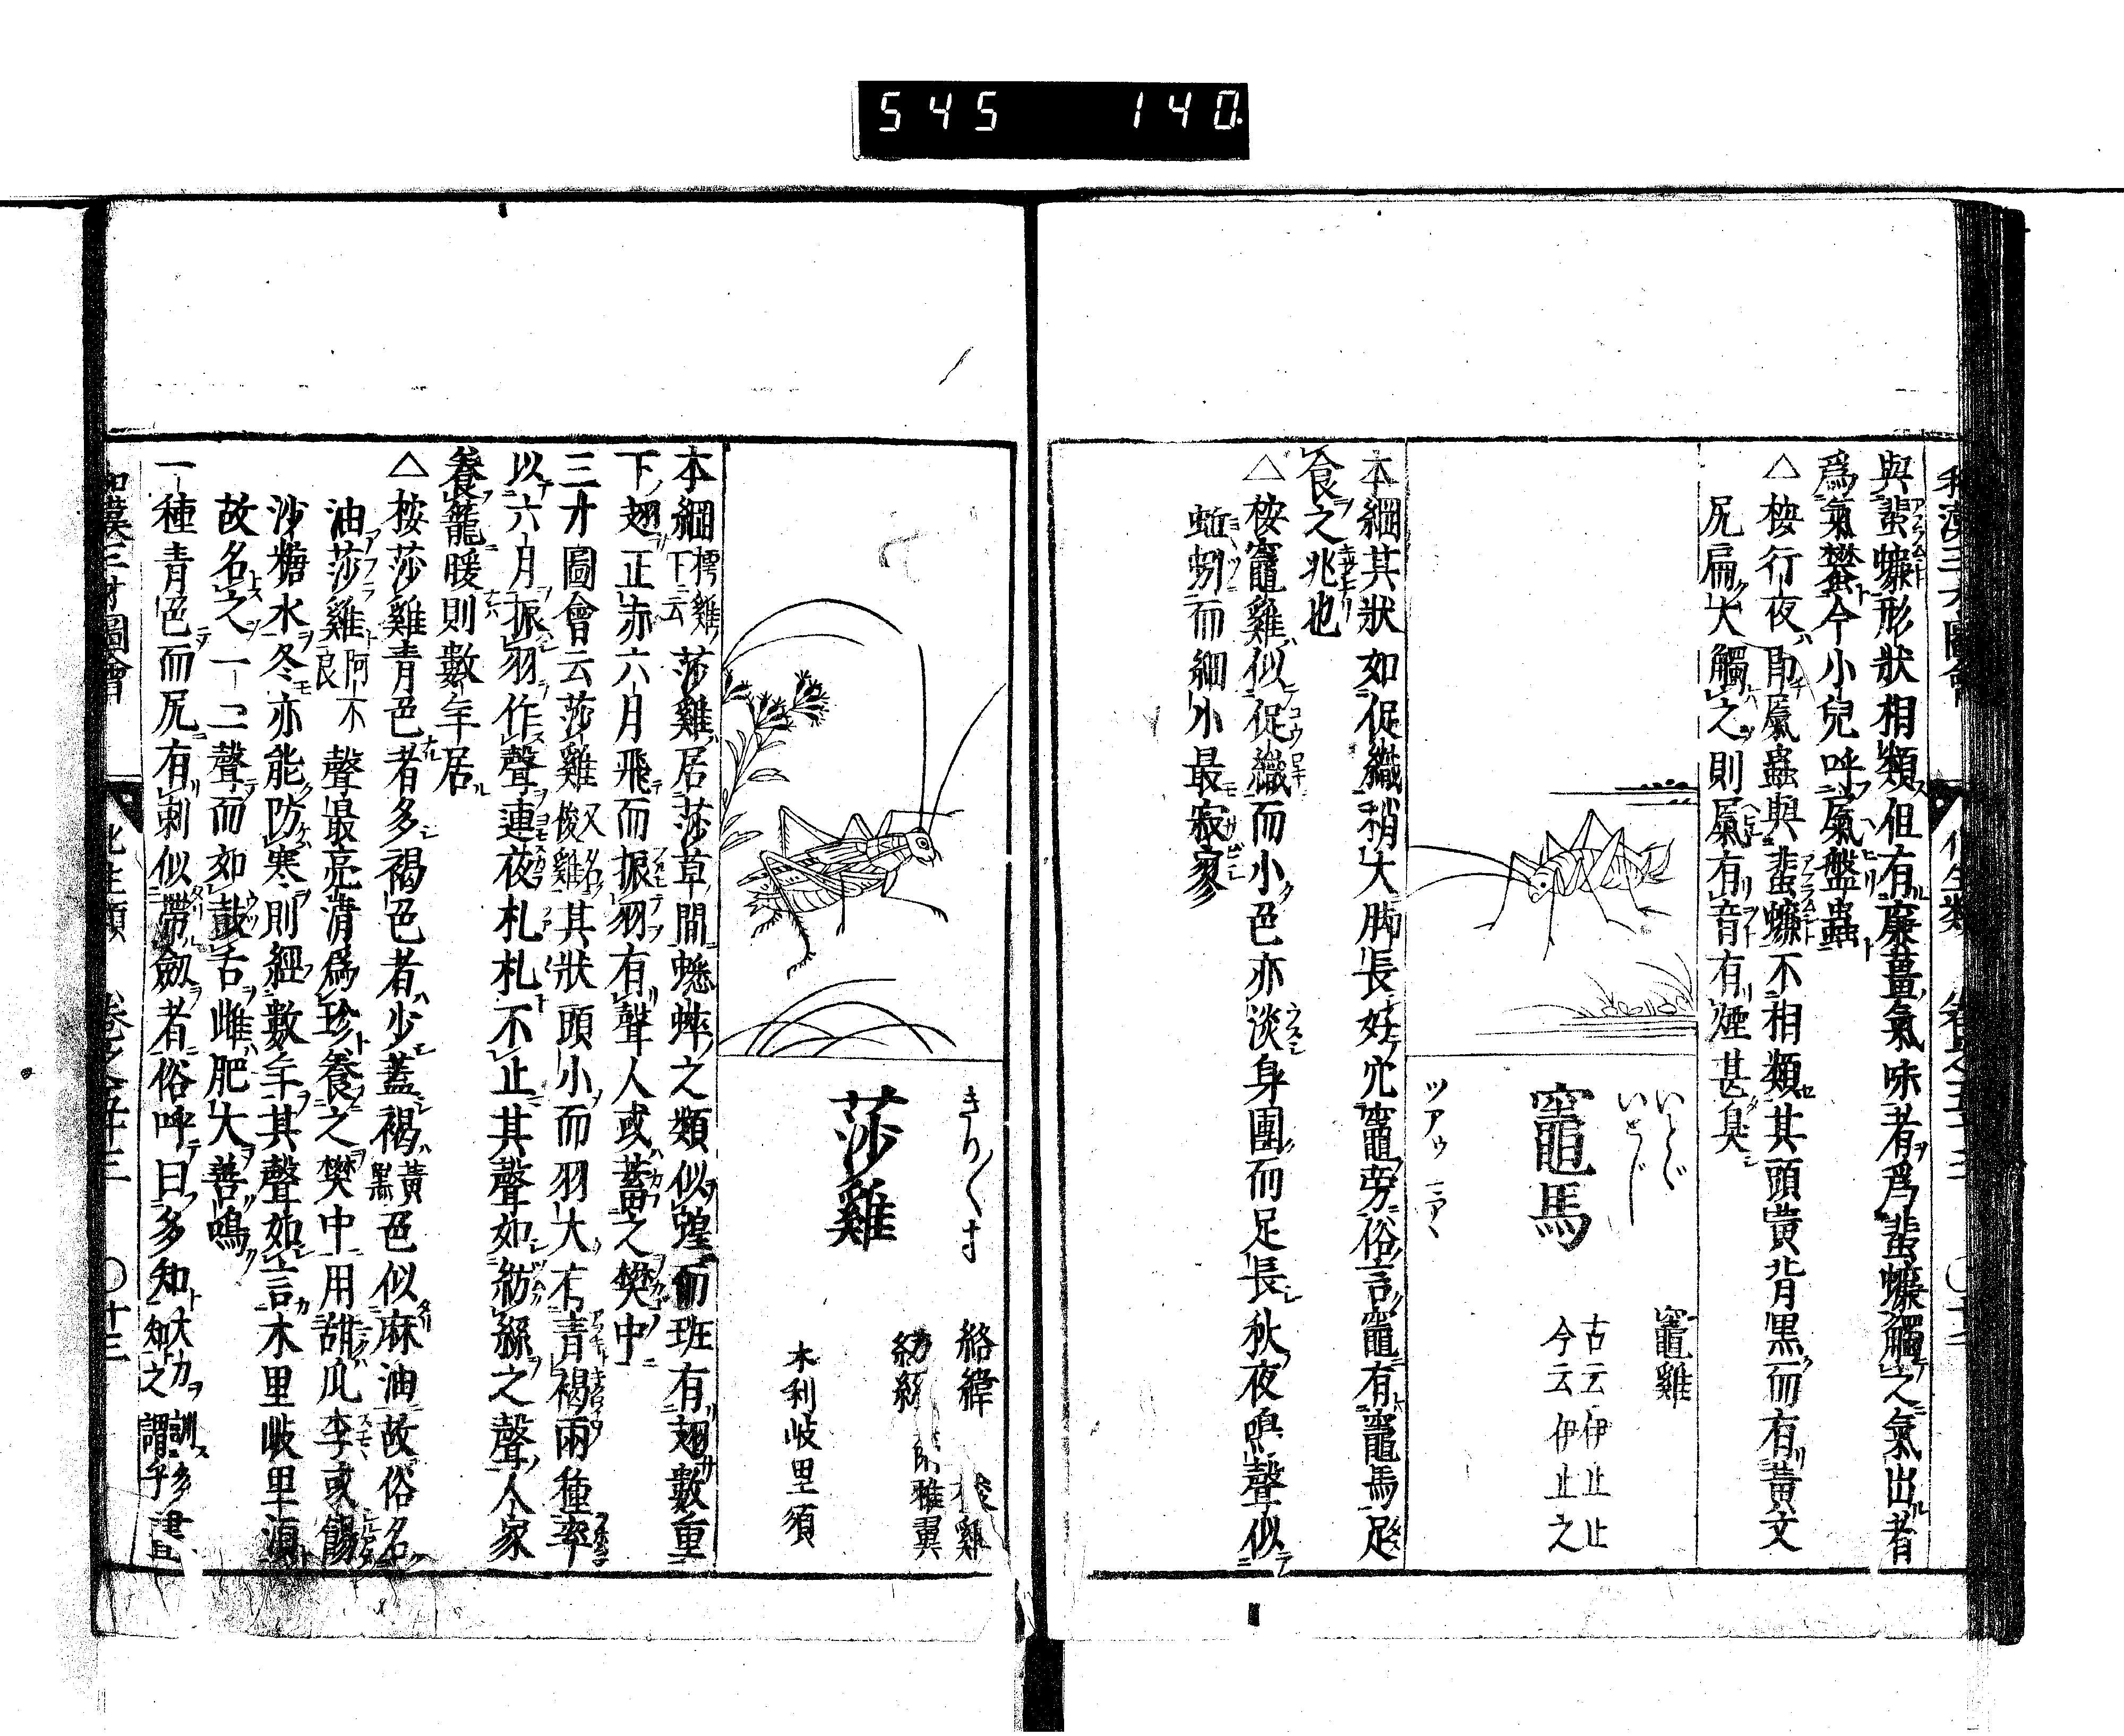 545 140
與蜚蠊形狀相類但有廉薑氣味者爲蜚蠊觸之氣出者
爲氣䗤今小兒呼屁盤蟲
△桉行夜卽屁蟲與蜚蠊不相類其頭黃背黒而有黃文
尻扁大觸之則屁有音有煙甚臭
竈雞
いとゞ
いとゞ
竈馬
古云伊止止
今云伊止之
ツアウ
本綱其狀如促織稍大脚長好穴竈旁俗言竈有竈馬足
食之兆也
△桉竈雞似促織而小色亦淡身團而足長秋夜鳴聲似
蚯蚓而細小最寂寥
絡緯
きり〳〵す
莎雞
木利岐里須
本綱樗雞下云莎雞居莎草間蟋蟀之類似蝗而班有翅數重
下翅正赤六月飛而振羽有聲人或蓄之樊中
三才圖會云莎雞又名俊雞其狀頭小而羽大有青褐兩種率
以六月振羽作聲連夜札札不止其聲如紡絲之聲人家
養籠暖則數年居
△桉莎雞青色者多褐色者少蓋褐黃黒色似麻油故俗名
油莎雞阿不良聲最亮清爲珍養之樊中用甜瓜李或餳
沙糖水冬亦能防寒則經數年其聲如言木里岐里須
故名之一二聲而如鼓舌雌肥大善鳴
一種青色而尻有刺似帶劔者俗呼曰多知大刀訓多知之謂乎
和漢三才圖會
化生類
卷之五十三
〇十三